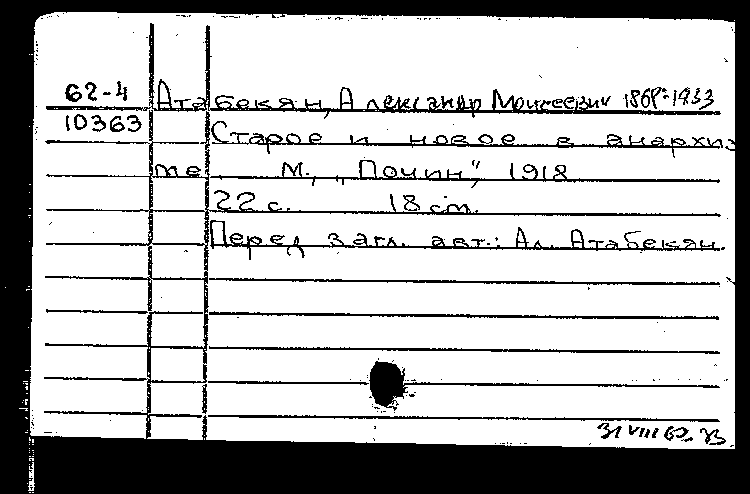 62-4 Атабекян, Александр Моисеевич 1868-1933
10363 Старое и новое в анархиз
ме. М., „Почин", 1918
22 с. 18 см.
Перед загл. авт.: Ал. Атабекян.
31 VIII 62.